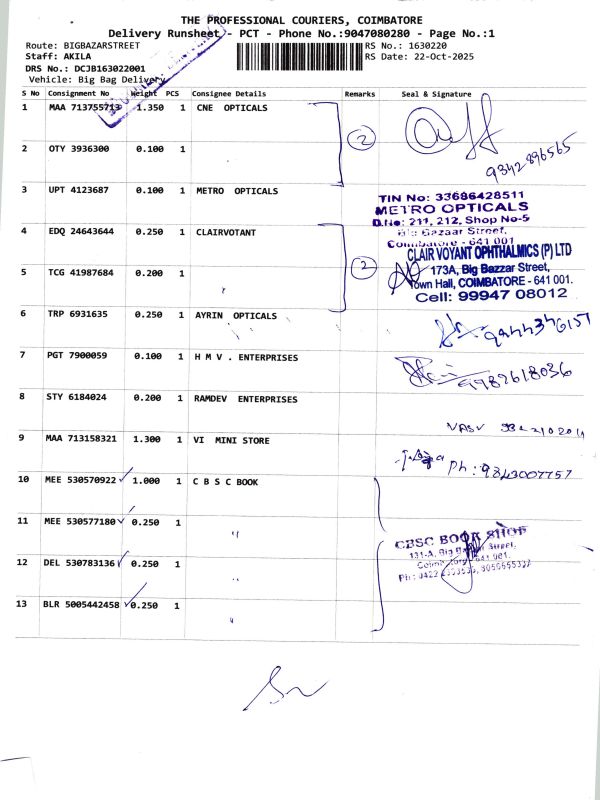 THE PROFESSIONAL COURIERS, COIMBATORE
Delivery Runsheet - PCT - Phone No.:9047080280 - Page No.:1
Route: BIGBAZARSTREET
RS No.: 1630220
Staff: AKILA
RS Date: 22-Oct-2025
DRS No.: DCJB163022001
Vehicle: Big Bag Delivery
S No Consignment No Weight PCS Consignee Details Remarks Seal & Signature
1 MAA 713755713 1.350 1 CNE OPTICALS
2
9342896565
2 OTY 3936300 0.100 1
3 UPT 4123687 0.100 1 METRO OPTICALS
TIN No: 33686428511
METRO OPTICALS
D.No: 211, 212, Shop No-5
Big Bazaar Street,
Coimbatore - 641 001
4 EDQ 24643644 0.250 1 CLAIRVOTANT
2
CLAIR VOYANT OPHTHALMICS (P) LTD
173A, Big Bazzar Street,
Town Hall, COIMBATORE - 641 001.
Cell: 99947 08012
5 TCG 41987684 0.200 1 "
6 TRP 6931635 0.250 1 AYRIN OPTICALS
9944346157
7 PGT 7900059 0.100 1 H M V . ENTERPRISES
9982618036
8 STY 6184024 0.200 1 RAMDEV ENTERPRISES
9 MAA 713158321 1.300 1 VI MINI STORE
Ph: 9843007757
10 MEE 530570922 1.000 1 C B S C BOOK
11 MEE 530577180 0.250 1 "
CBSC BOOK SHOP
131-A, Big Bazaar Street,
Coimbatore - 641 001.
12 DEL 530783136 0.250 1 "
13 BLR 5005442458 0.250 1 "